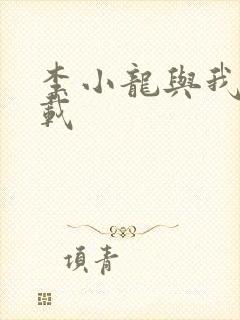 李小龍與我
載
項青